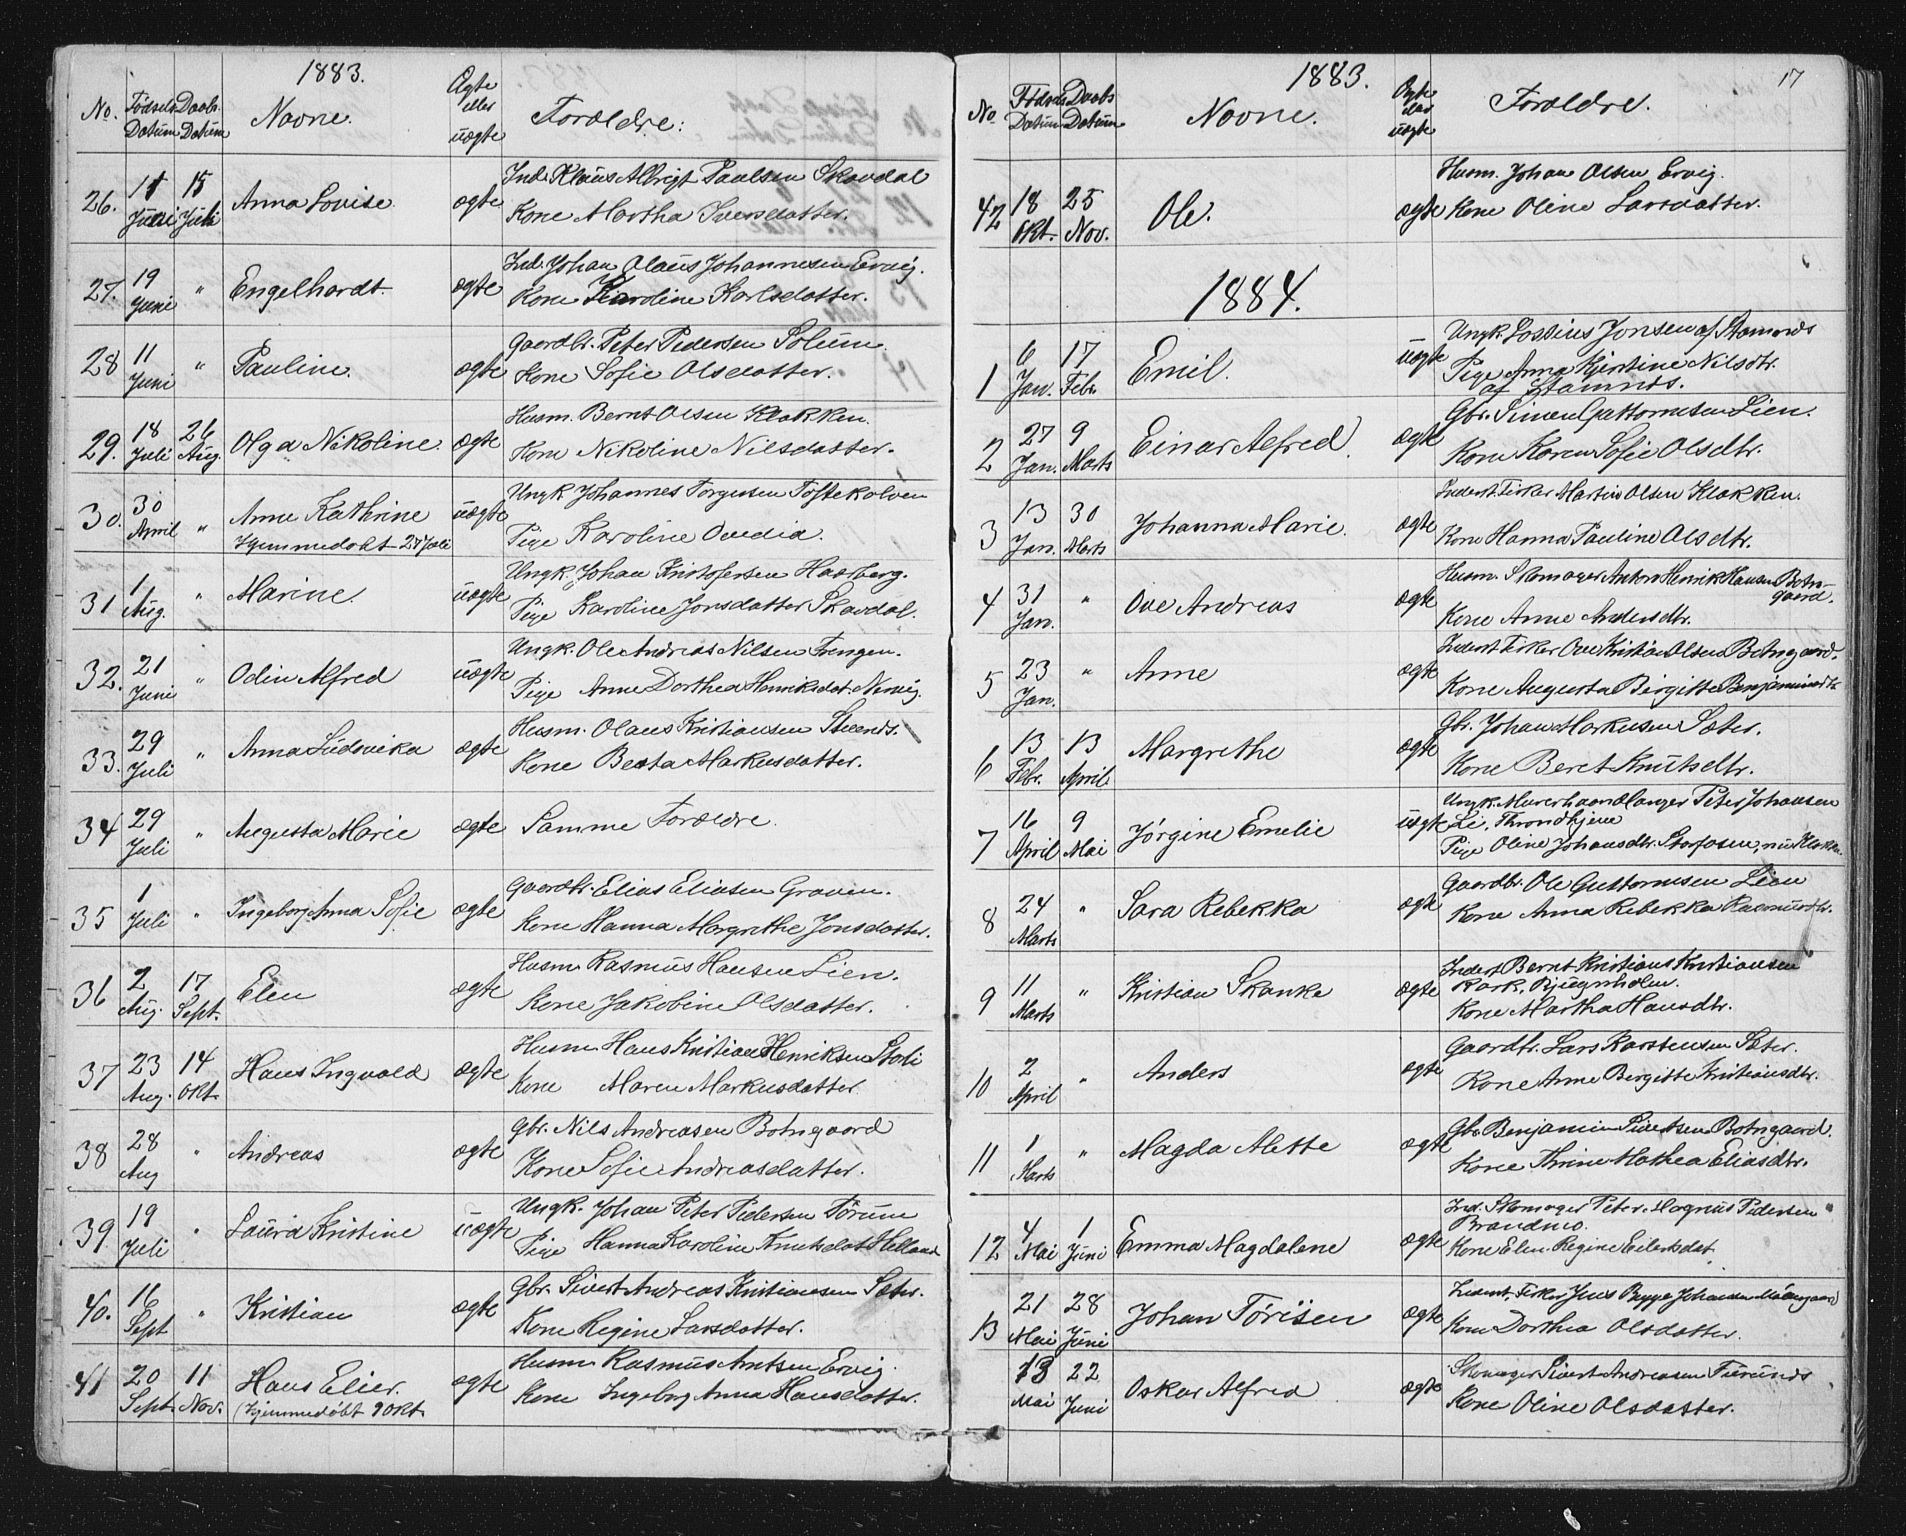 1883.
No. Fødsels Datum Daabs Datum Navne. Ægte eller uægte Forældre.
26. 11 Juni 15 Juli Anna Lovise. ægte Ind. Klaus Albrigt Paulsen Skavdal
Kone Martha Iversdatter.
27. 19 Juni " Engelhardt. ægte Ind. Johan Olaus Johannesen Ervig.
Kone Karoline Karlsdatter.
28 11 Juni " Pauline. ægte Gaardbr. Peter Pedersen Solum
Kone Sofie Olsdatter.
29. 18 Juli 26 Aug. Olga Nikoline. ægte Husm. Bernt Olsen Klakken.
Kone Nikoline Nilsdatter.
30. 30 April " Anne Kathrine uægte Ungk. Johannes Torgersen Toftekolven
Hjemmedøbt 27 Juli Pige Karoline Ovedia.
31 1 Aug. " Marine. uægte Ungk. Johan Kristofersen Haarberg.
Pige Karoline Jonsdatter Skavdal.
32. 21 Juni " Odin Alfred uægte Ungk. Ole Andreas Nilsen
Pige Anne Dorthea Henriksdat. Nervig.
33. 29 Juli " Anna Ludovika ægte Husm. Olaus Kristiansen
Kone Berta Markusdatter.
34 29 Juli " Augusta Marie ægte Samme Forældre.
35 1 Juli " Ingeborg Anna Sofie ægte Gaardbr. Elias Eliasen Graven.
Kone Hanna Margrethe Jonsdatter.
36 2 Aug. 17 Sept. Elen ægte Husm. Rasmus Hansen Lien.
Kone Jakobine Olsdatter.
37 23 Aug. 14 Okt. Hans Ingvald ægte Husm. Hans Kristian Henriksen Stoli
Kone Maren Markusdatter.
38 28 Aug " Andreas ægte Gbr. Nils Andreasen Botngaard
Kone Sofie Andreasdatter.
39. 19 Juli " Laura Kristine uægte Ungk. Johan Peter Pedersen Dørum
Pige Hanna Karoline Knutsdat. Helland
40. 16 Sept " Kristian ægte Gbr. Sivert Andreas Kristiansen Sæter.
Kone Regine Larsdatter.
41 20 Sept. 11 Nov. Hans Elier. ægte Husm. Rasmus Arntsen Ervig
(Hjemmedøbt 9 Okt. Kone Ingeborg Anna Hansdatter.
17
1883.
No Fødsels Datum Daabs Datum Navne. Ægte eller uægte Forældre.
42 18 Okt. 25 Nov. Ole. ægte Husm. Johan Olsen Ervig.
Kone Oline Larsdatter.
1884.
1 6 Jan. 17 Febr. Emil. uægte Ungk. Lossius Jonsen af Stamnes
Pige Anna Kjerstine Nilsdtr.
af Stamnes.
2 27 Jan. 9 Marts Einar Alfred. ægte Gbr. Simen Guttormsen Lien.
Kone Karen Sofie Olsdtr.
3 13 Jan. 30 Marts Johanna Marie. ægte Inderst Fisker Martin Olsen Klakken.
Kone Hanna Pauline Olsdtr.
4 31 Jan. " Ove Andreas ægte Husm. Skomager Anton Henrik Hansen Botngaard.
Kone Anne Andersdtr.
5 23 Jan. " Anne ægte Inderst Fisker Ove Kristian Olsen Botngaard.
Kone Augusta Birgitte Benjaminsdtr
6 13 Febr. 13 April Margrethe ægte Gbr. Johan Markusen Sæter.
Kone Beret Knutsdtr.
7 16 April 9 Mai Jørgine Emelie uægte Ungk. Murerhaandlanger Peter Johansen
Li, Throndhjem
Pige Oline Johansdtr. Storfosen, nu Klakken.
8 24 Marts " Sara Rebekka ægte Gaardbr. Ole Guttormsen Lien
Kone Anna Rebekka Rasmusdtr.
9 11 Marts " Kristian Skanke ægte Inderst Bernt Kristians Kristiansen
Kark,
Kone Martha Hansdtr.
10 2 April " Anders ægte Gaardbr. Lars Karstensen Sæter.
Kone Anne Bergitte Kristiansdtr.
11 1 Marts " Magda Alette ægte Gbr. Benjamin Sivertsen Botngaard.
Kone Thrine Mathea Eliasdtr.
12 4 Mai 1 Juni Emma Magdalene ægte Ind. Skomager Peter Magnus Pedersen
Brandmo.
Kone Elen Regine Eilertsdat.
13 21 Mai 28 Juni Johan Tørisen ægte Inderst. Fisker Jens Bygge Johansen
Kone Dorthea Olsdatter.
13 Mai 22 Juni Oskar Alfred ægte Skomager Sivert Andreasen
Kone Oline Olsdatter.